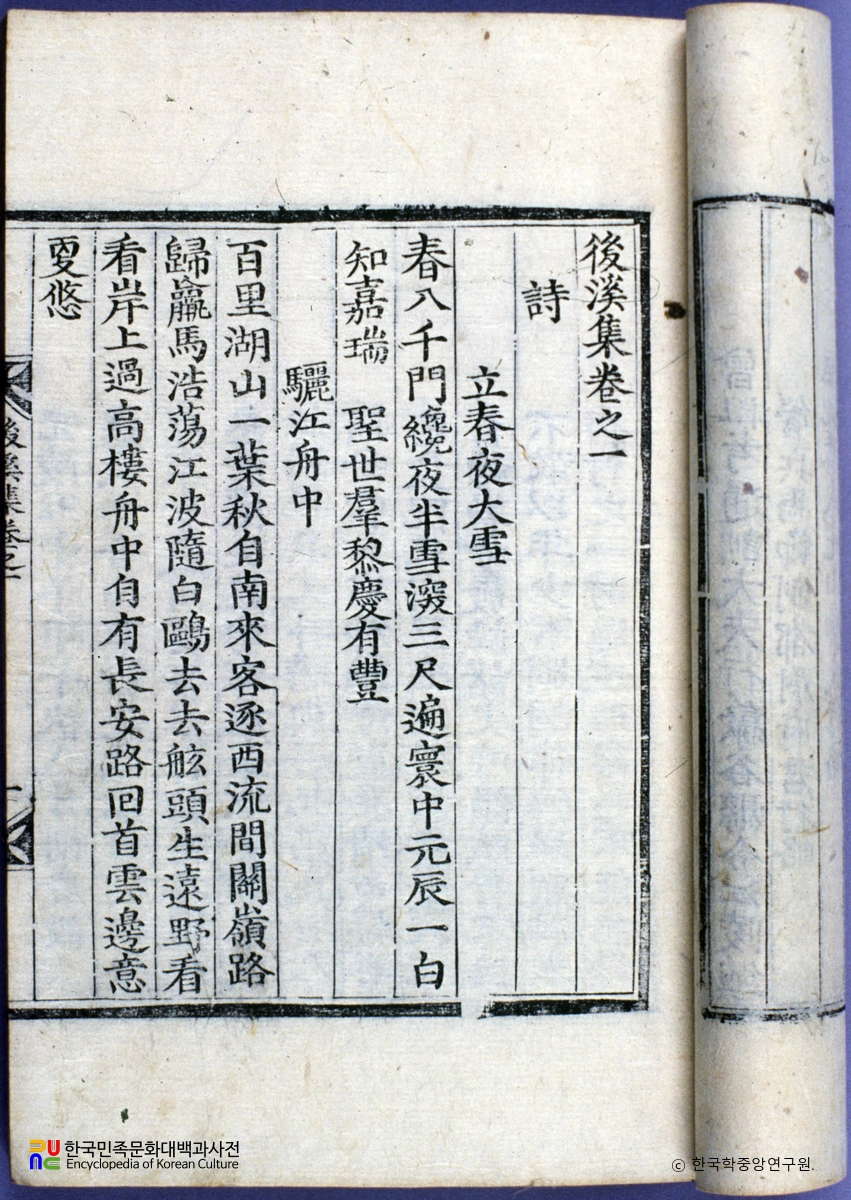 後溪集卷之一
詩
立春夜大雪
春入千門纔夜半雪深三尺遍寰中元辰一白
知嘉瑞 聖世羣黎慶有豐
驪江舟中
百里湖山一葉秋自南來客逐西流間關嶺路
歸羸馬浩蕩江波隨白鷗去去舷頭生遠野看
看岸上過高樓舟中自有長安路回首雲邊意
更悠
後溪集卷之一
한국민족문화대백과사전
Encyclopedia of Korean Culture
© 한국학중앙연구원.